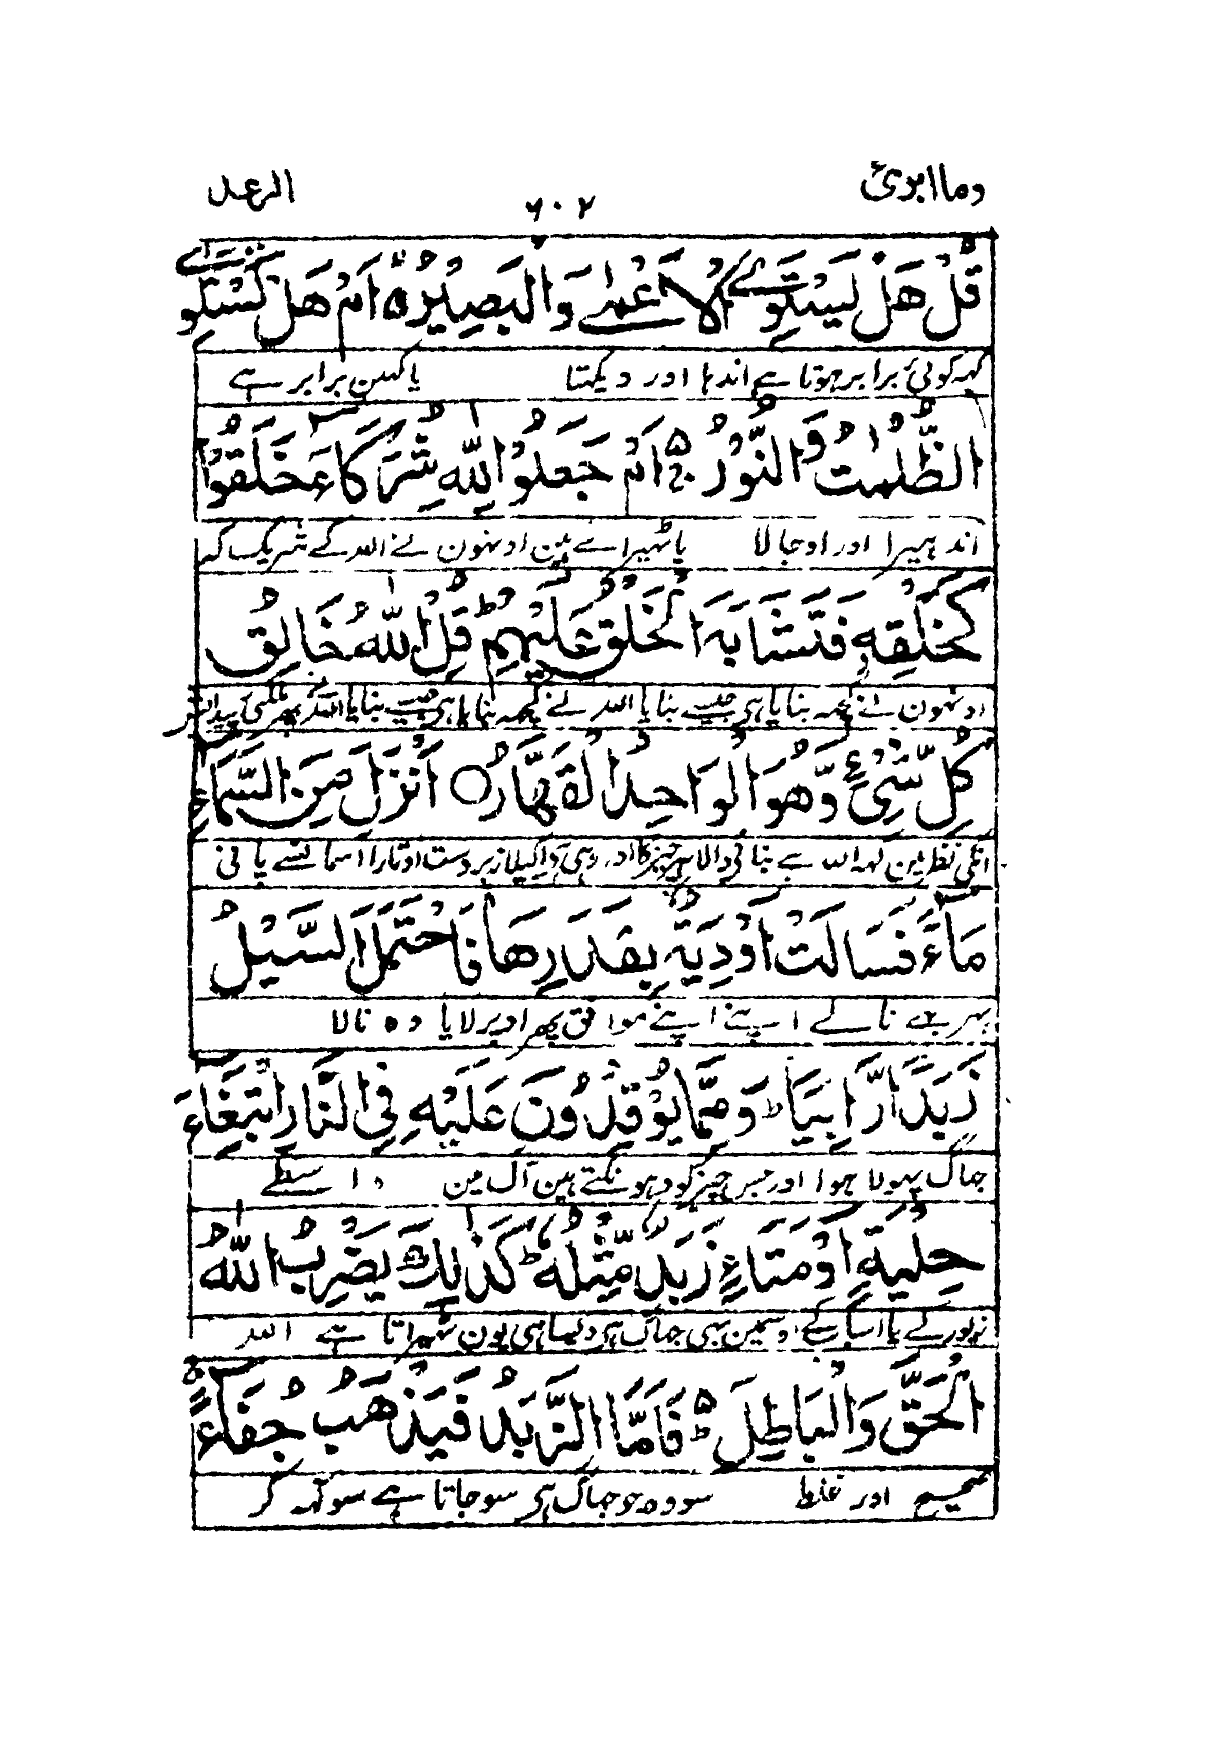 وما ابرئ
۶۰۲
الرعد
قُلْ هَلْ يَسْتَوِے الْاَعْمٰے وَالْبَصِيْرُ ۙ۬ اَمْ هَلْ تَسْتَوِے
کہہ کوئی برابر ہوتا ہے اندہا اور دیکہتا یا کہین برابر ہے
الظُّلُمٰتُ وَالنُّوْرُ ۚ۬ اَمْ جَعَلُوْا لِلّٰهِ شُرَكَآءَ خَلَقُوْا
اندہیرا اور اوجالا یا ٹہیرائے ہین اونہون نے اللہ کے شریک کہ
كَخَلْقِهٖ فَتَشَابَهَ الْخَلْقُ عَلَيْهِمْ ؕ قُلِ اللّٰهُ خَالِقُ
اونہون نے کچہہ بنایا ہی جیسے بنایا اللہ نے
كُلِّ شَیْءٍ وَّهُوَ الْوَاحِدُ الْقَهَّارُ ○ اَنْزَلَ مِنَ السَّمَآءِ
انکی نظر مین کہہ اللہ ہے بنانی والا ہر چیز کا اور وہی ہے اکیلا زبردست اوتارا اسمان سے پانی
مَآءً فَسَالَتْ اَوْدِيَةٌۢ بِقَدَرِهَا فَاحْتَمَلَ السَّيْلُ
پہر بہے نالے اپنے اپنے موافق پہر اوپر لایا وہ نالا
زَبَدًا رَّابِيًا ؕ وَمِمَّا يُوْقِدُوْنَ عَلَيْهِ فِی النَّارِ ابْتِغَآءَ
جہاگ پہولا ہوا اور جس چیز کو دہونکتے ہین آگ مین واسطے
حِلْيَةٍ اَوْ مَتَاعٍ زَبَدٌ مِّثْلُهٗ ؕ كَذٰلِكَ يَضْرِبُ اللّٰهُ
زیور کے یا اسباب کے اوسمین بہی جہاگ ہی ویسا ہی یون ٹہراتا ہے اللہ
الْحَقَّ وَالْبَاطِلَ ؕ۬ فَاَمَّا الزَّبَدُ فَيَذْهَبُ جُفَآءً ۚ
صحیح اور غلط سو وہ جو جہاگ ہی سو جاتا ہے سوکہہ کر